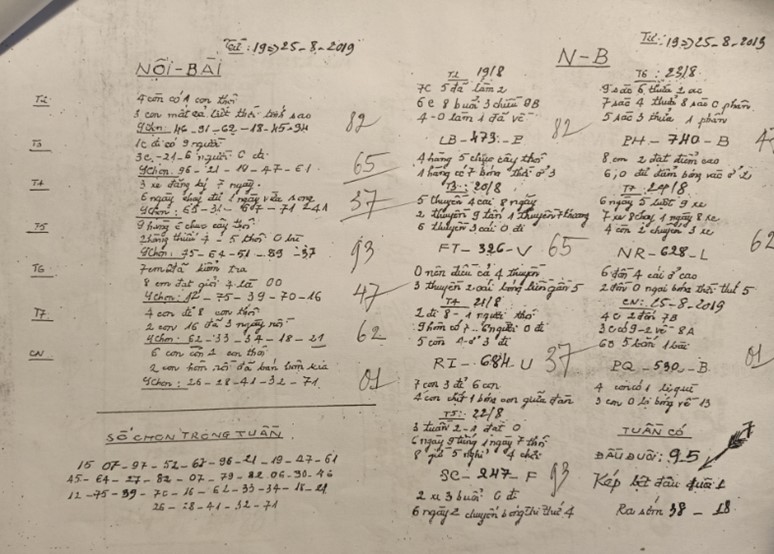 Từ : 19=>25-8-2019
NỘI-BÀI
T2
4 còn có 1 con thôi
3 con mất cả lượt thôi biết sao
9chọn: 46-91-62-18-45-94
82
T3
1c đi có 9 người
3c,-21-6 người 0 đi
9chọn: 96-21-19-47-61
65
T4
3 xe đăng ký 7 ngày
6 ngày chạy đủ 1 ngày vừa song
9chọn: 65-31-
37
T5
9 hàng 6 chào cây thôi
2 hàng thiếu 7-5 thôi 0
9chọn: 75-64-51-89-37
93
T6
7 em đã kiểm tra
8 em đạt giỏi 4 là 00
9chọn: 12-75-39-70-16
47
T7
4 con đi 8 con thôi
2 con 16 đã 3 ngày rồi
9chọn: 62-33-34-18-21
62
CN
6 con còn 1 con thôi
2 con hôm rồi đã bán hôm kia
9chọn: 26-28-41-32-71
01
SỐ CHỌN TRONG TUẦN
15 07-97-52-67-96-21-19-47-61
45-64-27-82-07-79-82 06-30-46
12-75-39-70-16-62-33-34-18-21
26-28-41-32-71
Từ : 19=>25-8-2019
N-B
T2 19/8
7C 5 đã làm 2
6c 8 buổi 3 chiều 9B
4-0 làm 1 đã về
LB-473-P
82
4 hàng 5 chào cây thôi
1 hàng có 7 bóng thôi ở 3
T3: 20/8
5 thuyền 4 cái 8 ngày
2 thuyền 9 tấn 1 thuyền 7
6 thuyền 3 cái 0 đi
FT-326-V
65
0 nên điều cả 4 thuyền
3 thuyền 2 cái bóng liền gần 5
T4 21/8
2 đi 8-1 người thôi
9 hôm có 7..6 người 0 đi
5 còn 4 ở 3 đi
RI-684-U
37
7 con 3 đẻ 6 con
4 con chịt 1 bóng con giữa đàn
T5: 22/8
3 tuần 2-1 đạt 0
6 ngày 9 từng 1 ngày 7 thôi
8 giờ 5 nghỉ 4 chơi
SC-247-F
93
2 xe 3 buổi 0 đi
6 ngày 2 chuyến bóng thì thứ 4
T6: 23/8
9 sào 6 thửa 2 ac
7 sào 4 thửa 8 sào 0 phân
5 sào 3 thửa 1 phân
PH-740-B
8 em 2 đạt điểm cao
6,0 đủ điểm bóng vào ở 2
T7 24/8
6 ngày 5 lượt 9 xe
7 xe 8 chạy 1 ngày 8 xe
4 còn 2 chuyến 3 xe
NR-628-L
6 đồn 4 cái ở cao
2 đồn 0 ngoi bóng thôi thứ 5
CN: 25-8-2019
4c 2 đồn 7B
3c có 9-2 về 8A
6B 5 bốn 1 bác
PQ-590-B
01
4 con có 1 lị quì
3 con 0 lị bóng về 13
TUẦN CÓ
ĐẦU ĐUÔI: 95
Kép bệt đầu đuôi 1
Ra sớm 38-18